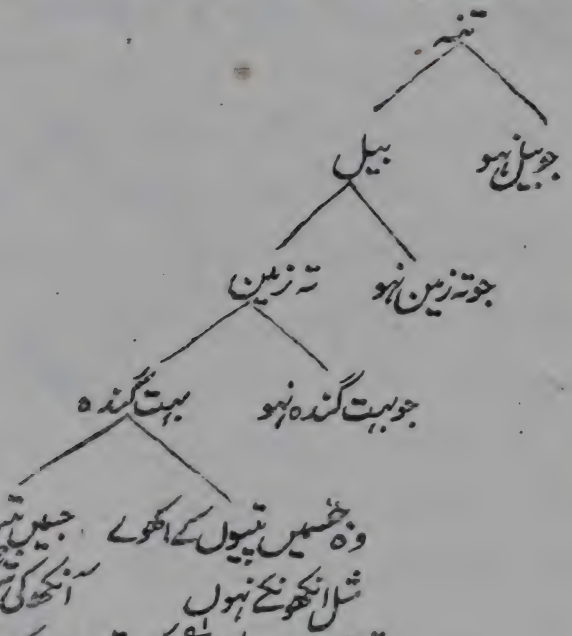 تنہ
جو بیل نہو
بیل
جو تہ زمین نہو
تہ زمین
جو بہت گندہ نہو
بہت گندہ
وہ جسمیں پتیوں کے انکھوے
مثل انکھونکے نہوں
جسمیں
آنکھ کی